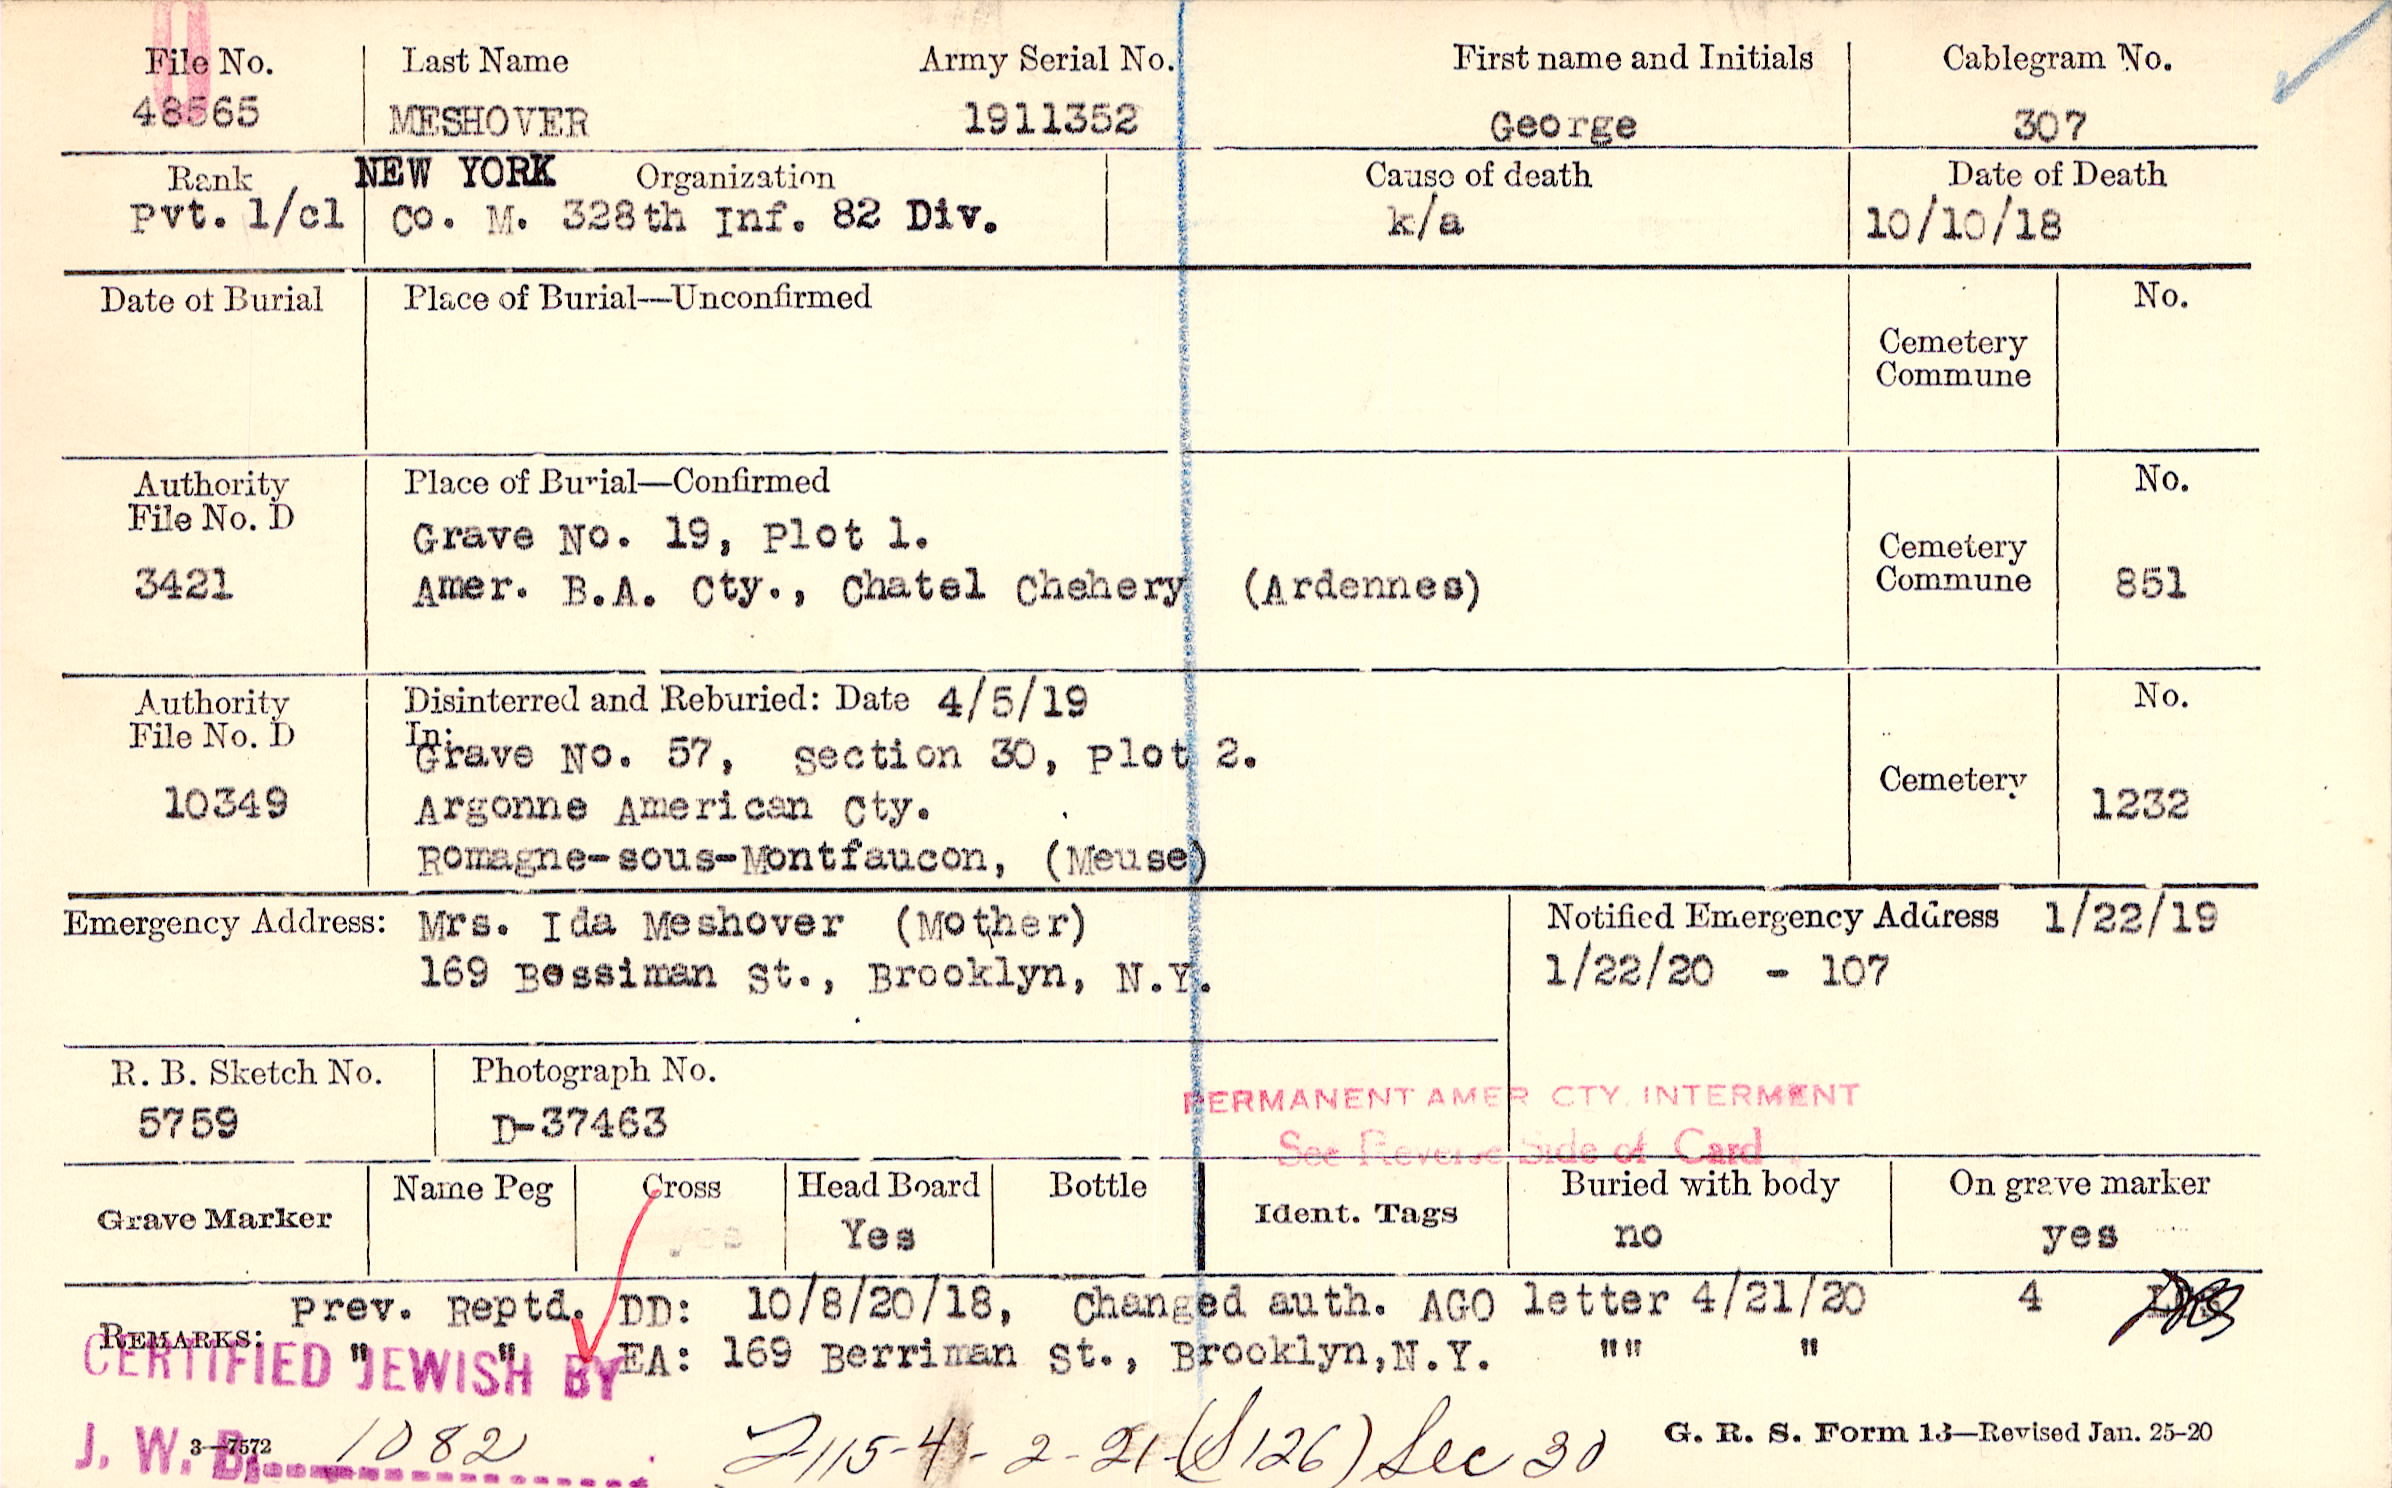 File No. Last Name Army Serial No. First name and Initials Cablegram No.
48565 MESHOVER 1911352 George 307
Rank NEW YORK Organization Cause of death Date of Death
Pvt. 1/cl Co. M. 328th Inf. 82 Div. k/a 10/10/18
Date of Burial Place of Burial—Unconfirmed No.
Cemetery
Commune
Authority Place of Burial—Confirmed No.
File No. D
Grave No. 19, Plot 1.
Cemetery
3421 Amer. B.A. Cty., Chatel Chehery (Ardennes) Commune 851
Authority Disinterred and Reburied: Date 4/5/19 No.
File No. D In:
Grave No. 57, Section 30, Plot 2.
Cemetery
10349 Argonne American Cty. 1232
Romagne-sous-Montfaucon, (Meuse)
Emergency Address: Mrs. Ida Meshover (Mother) Notified Emergency Address 1/22/19
169 Bessiman St., Brooklyn, N.Y. 1/22/20 - 107
R. B. Sketch No. Photograph No.
PERMANENT AMER CTY. INTERMENT
5759 D-37463
See Reverse Side of Card
Name Peg Cross Head Board Bottle Buried with body On grave marker
Grave Marker Ident. Tags
yes Yes no yes
Prev. Reptd. DD: 10/8/20/18, Changed auth. AGO letter 4/21/20 4
REMARKS:
" " EA: 169 Berriman St., Brooklyn, N.Y. "" "
CERTIFIED JEWISH BY
J. W. B. 1082
3—7572
2115-41-2-21-(S126) Sec 30
G. R. S. Form 13—Revised Jan. 25-20